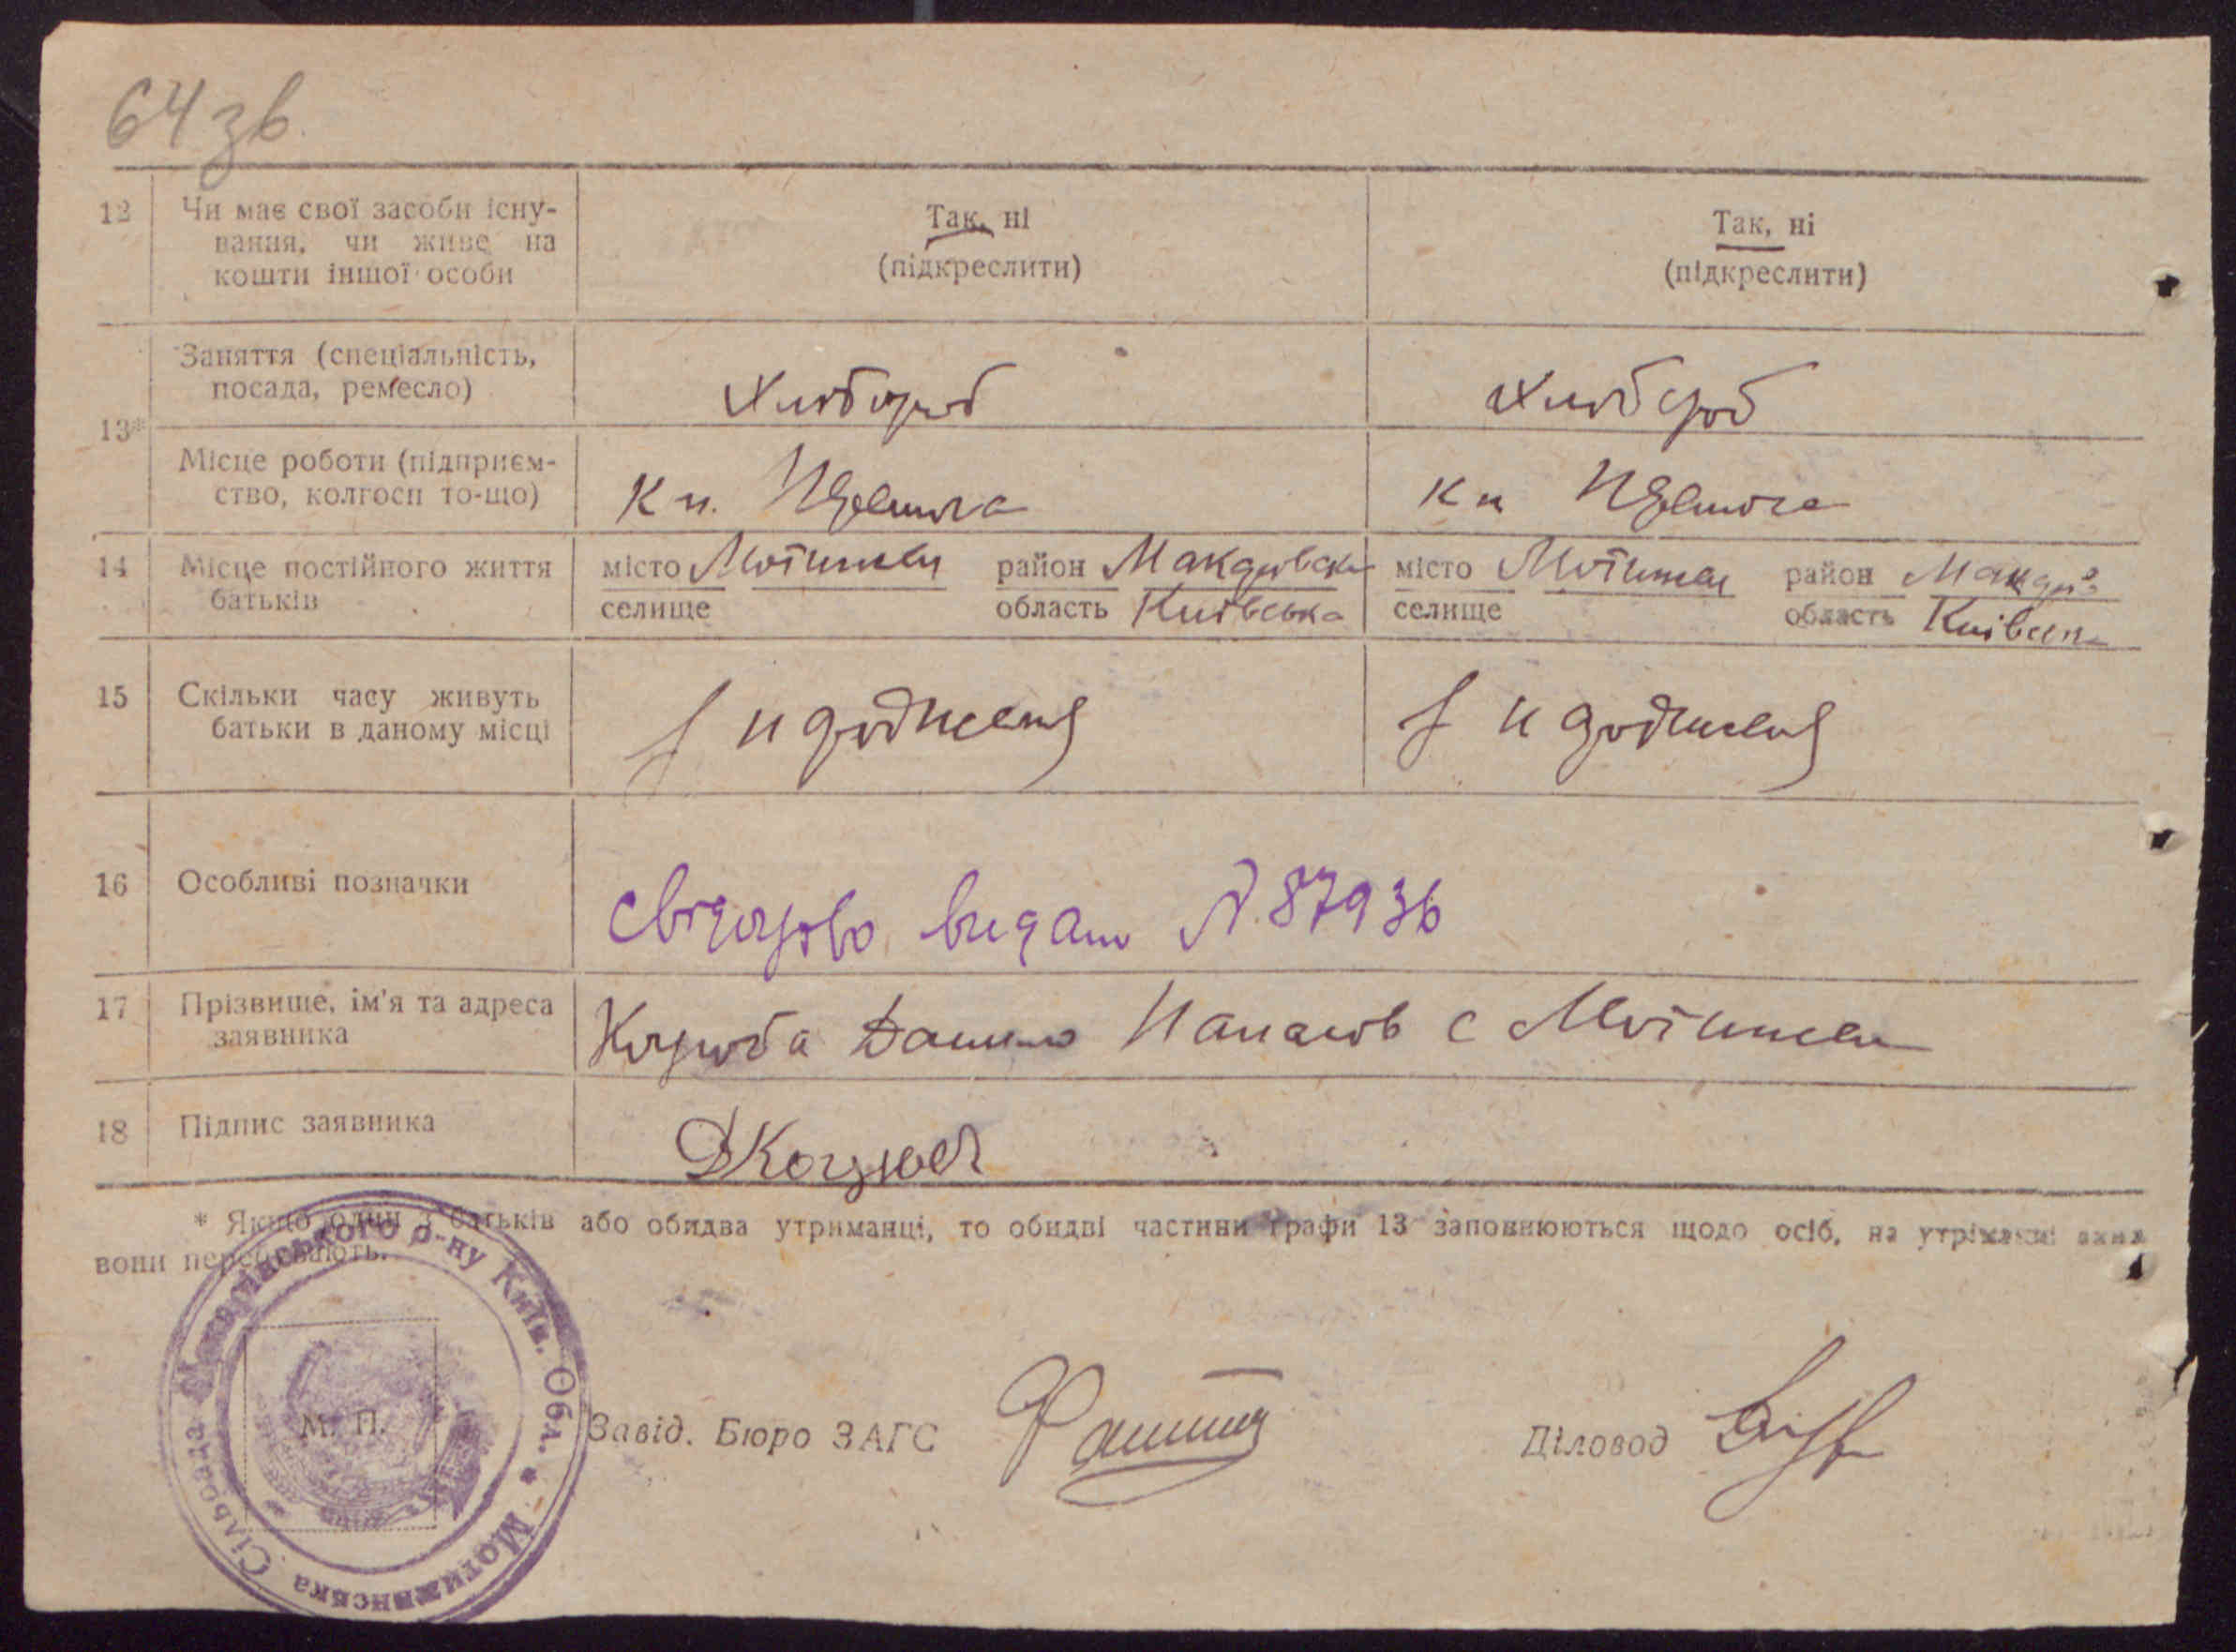 64 зв.
12 Чи має свої засоби існу-
вання, чи живе на
кошти іншої особи
Так, ні
(підкреслити)
Так, ні
(підкреслити)
13*
Заняття (спеціальність,
посада, ремесло)
Хлібороб
Хлібороб
Місце роботи (підприєм-
ство, колгосп то-що)
14 Місце постійного життя
батьків
місто Мотижин район Макаровськ
селище область Київська
місто Мотижин район Макарів
селище область Київська
15 Скільки часу живуть
батьки в даному місці
з народження
з народження
16 Особливі позначки
Свідоцтво видано №87936
17 Прізвище, ім'я та адреса
заявника
Данило Панасов с Мотижин
18 Підпис заявника
* Якщо один з батьків або обидва утриманці, то обидві частини графи 13 заповнюються щодо осіб, на утріманні яких
вони перебувають.
М. П.
Завід. Бюро ЗАГС
Діловод
Мотижинська Сільрада Макарівського р-ну Київ. Обл.